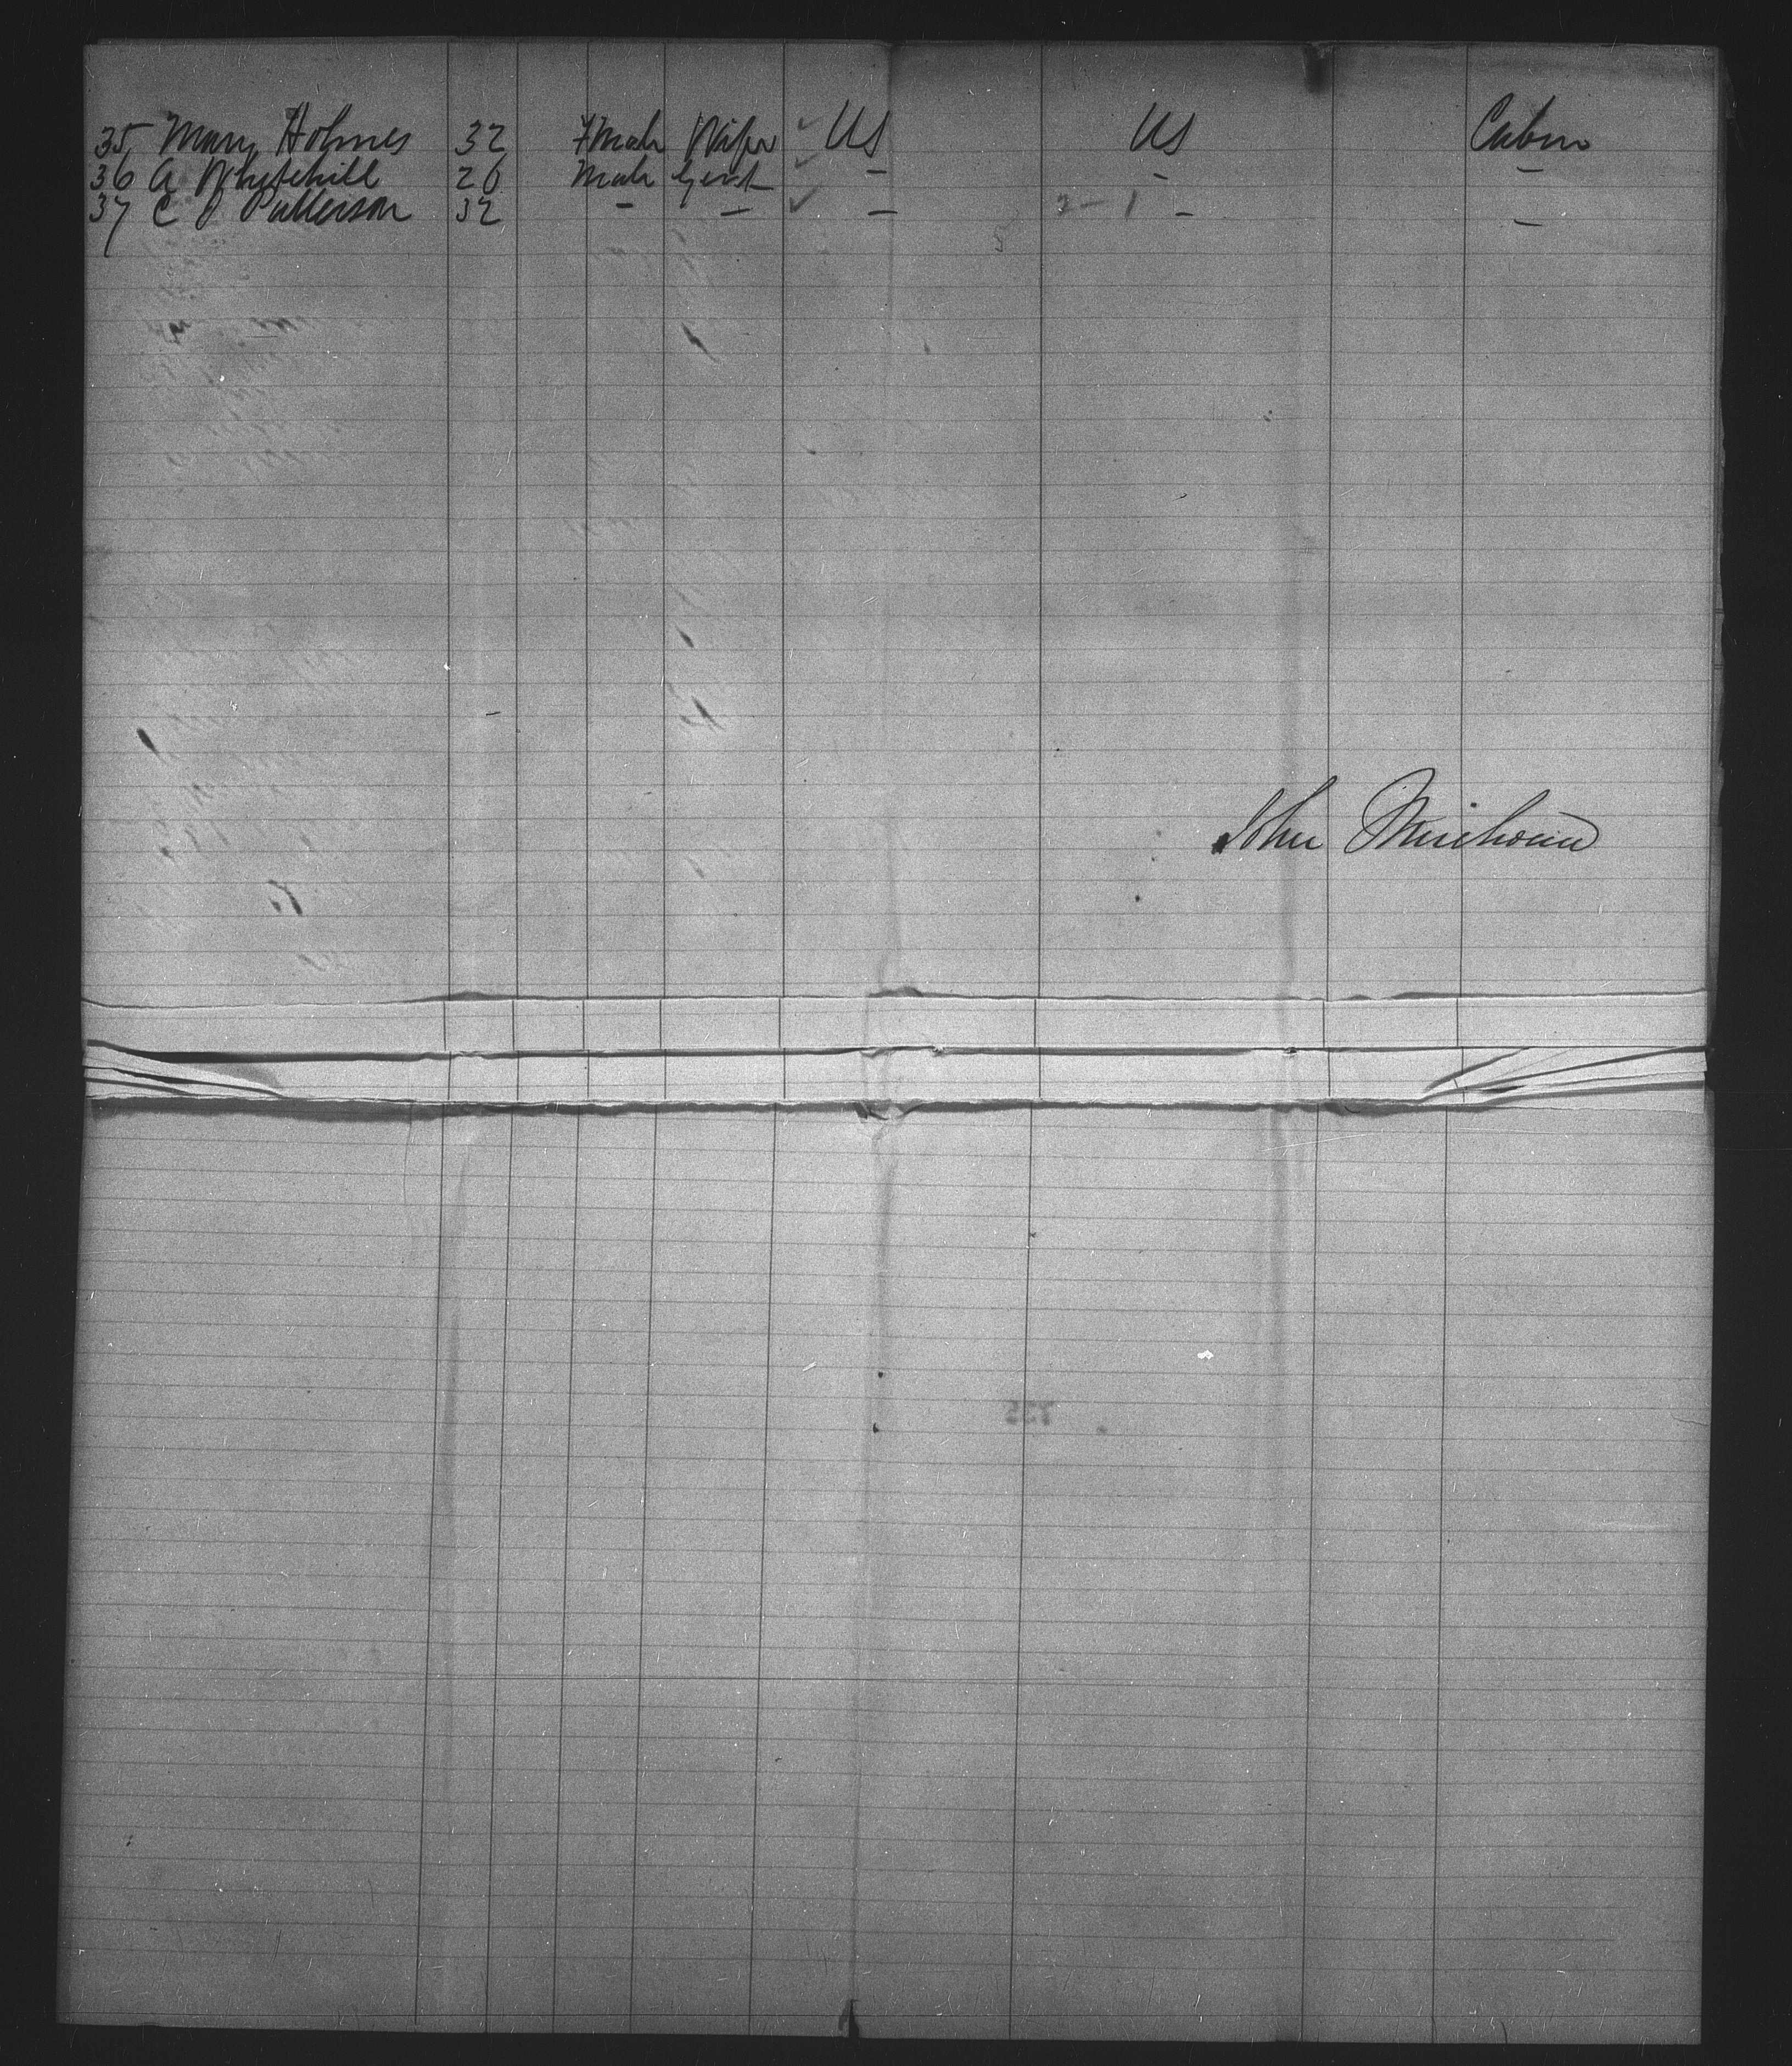 35 Mary Holmes 32 Fmale Wife ✓ US US Cabin
36 A Whitehill 26 Male Gent ✓ — — —
37 C J Patterson 32 — — ✓ — 2 — 1 — —
John